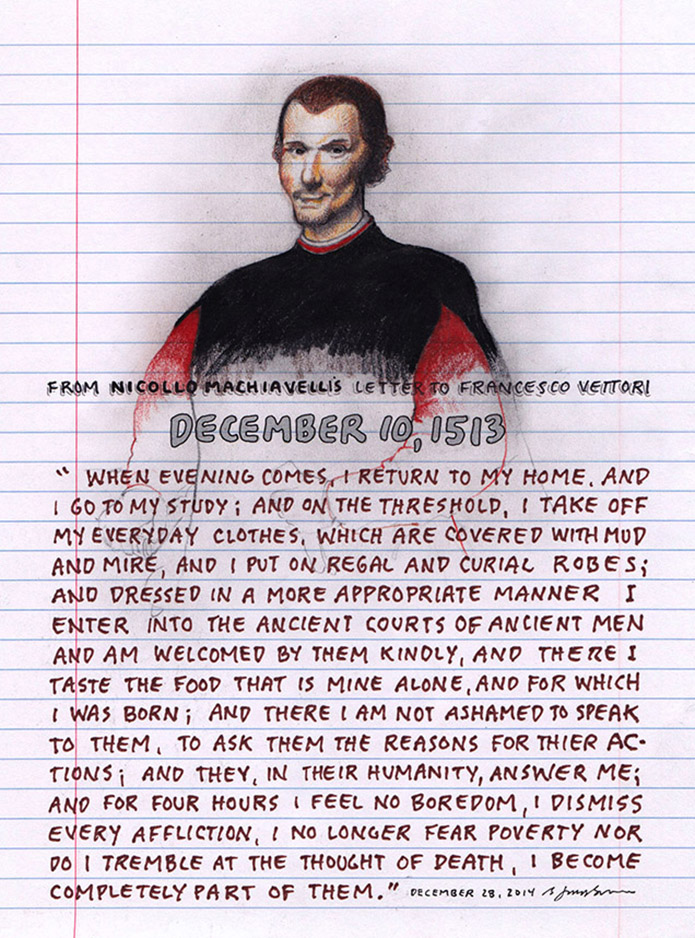 FROM NICOLLO MACHIAVELLI'S LETTER TO FRANCESCO VETTORI
DECEMBER 10, 1513
" WHEN EVENING COMES, I RETURN TO MY HOME, AND
I GO TO MY STUDY; AND ON THE THRESHOLD, I TAKE OFF
MY EVERYDAY CLOTHES, WHICH ARE COVERED WITH MUD
AND MIRE, AND I PUT ON REGAL AND CURIAL ROBES;
AND DRESSED IN A MORE APPROPRIATE MANNER I
ENTER INTO THE ANCIENT COURTS OF ANCIENT MEN
AND AM WELCOMED BY THEM KINDLY, AND THERE I
TASTE THE FOOD THAT IS MINE ALONE, AND FOR WHICH
I WAS BORN; AND THERE I AM NOT ASHAMED TO SPEAK
TO THEM, TO ASK THEM THE REASONS FOR THIER AC-
TIONS; AND THEY, IN THEIR HUMANITY, ANSWER ME;
AND FOR FOUR HOURS I FEEL NO BOREDOM, I DISMISS
EVERY AFFLICTION, I NO LONGER FEAR POVERTY NOR
DO I TREMBLE AT THE THOUGHT OF DEATH, I BECOME
COMPLETELY PART OF THEM." DECEMBER 28, 2014